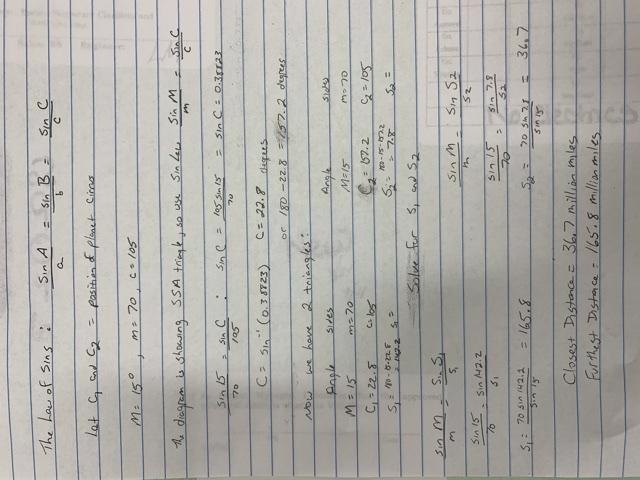 The Law of Sins : sin A / a = sin B / b = sin C / c
Let C1 and C2 = position of planet
M = 15°, m = 70, c = 105
The diagram is showing SSA triangle, so use Sin Law sin M / m = sin C / c
sin 15 / 70 = sin C / 105 : sin C = 105 sin 15 / 70 = sin C = 0.38823
C = sin⁻¹ (0.38823) C = 22.8 degrees
or 180 - 22.8 = 157.2 degrees
Now we have 2 triangles:
Angle sides Angle sides
M = 15 m = 70 M = 15 m = 70
C1 = 22.8 c = 105 C2 = 157.2 C2 = 105
S1 = 180-15-22.8 = 142.2 S1 = S2 = 180-15-157.2 = 7.8 S2 =
Solve for S1 and S2
sin M / m = sin S1 / S1 sin M / m = sin S2 / S2
sin 15 / 70 = sin 142.2 / S1 sin 15 / 70 = sin 7.8 / S2
S1 = 70 sin 142.2 / sin 15 = 165.8 S2 = 70 sin 7.8 / sin 15 = 36.7
Closest Distance = 36.7 million miles
Furthest Distance = 165.8 million miles